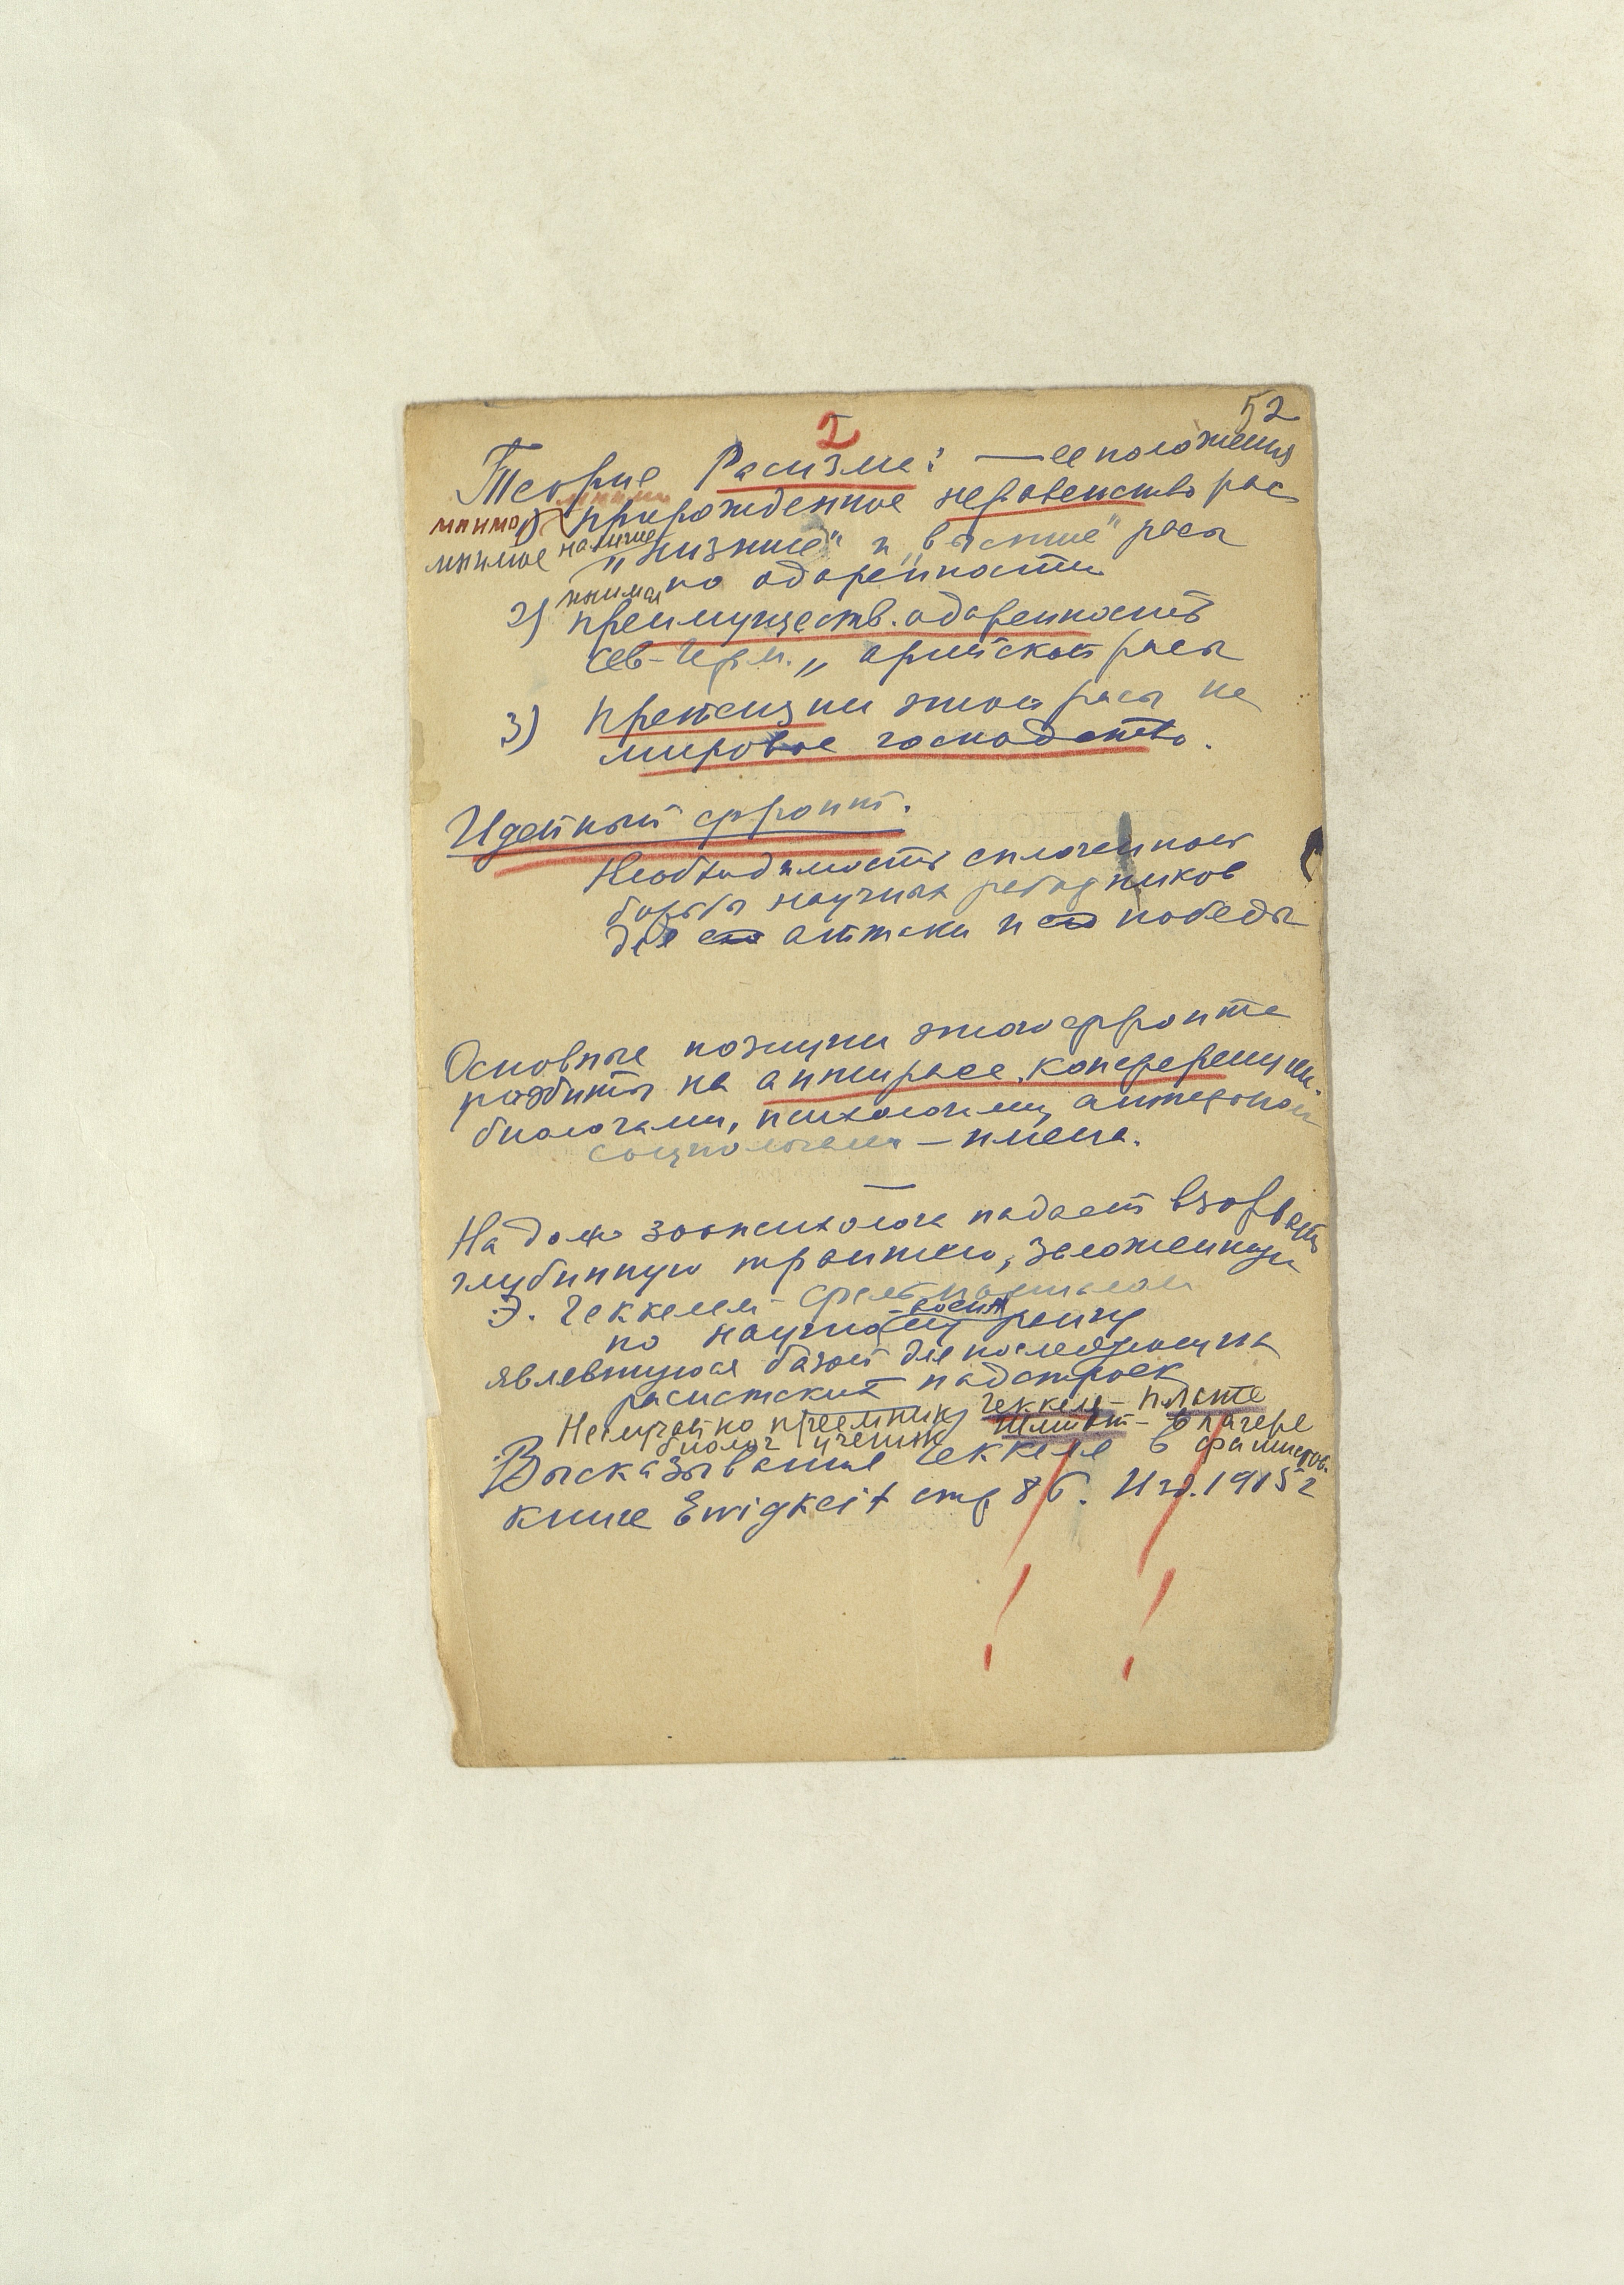 52
I
Теория Расизма: — ее положения
мнимое 1) прирожденное неравенство рас
мнимое наличие „низшие" и „высшие" расы
по одаренности
2) мнимая преимуществ. одаренность
Сев-Герм. „арийской расы
3) Претензии этой расы на
мировое господство.
Идейный фронт.
Необходимость сплоченной
борьбы научных работников
для атаки и победы
Основные позиции этого фронта
разбиты на антирасс. конференции
биологами, психологами, антропол
социологами – имена.
На долю зоопсихолога падает взорвать
глубинную траншею, заложенную
Э. Геккелем – фельдмаршалом
по научному рангу
являвшуюся базой для последующих
расистских надстроек
Не случайно преемник Геккеля – Плате
биолог ученик Шмидт – в лагере
фашистов.
Высказывания Геккеля в
книге Ewigkeit стр 86. Изд. 1915 г